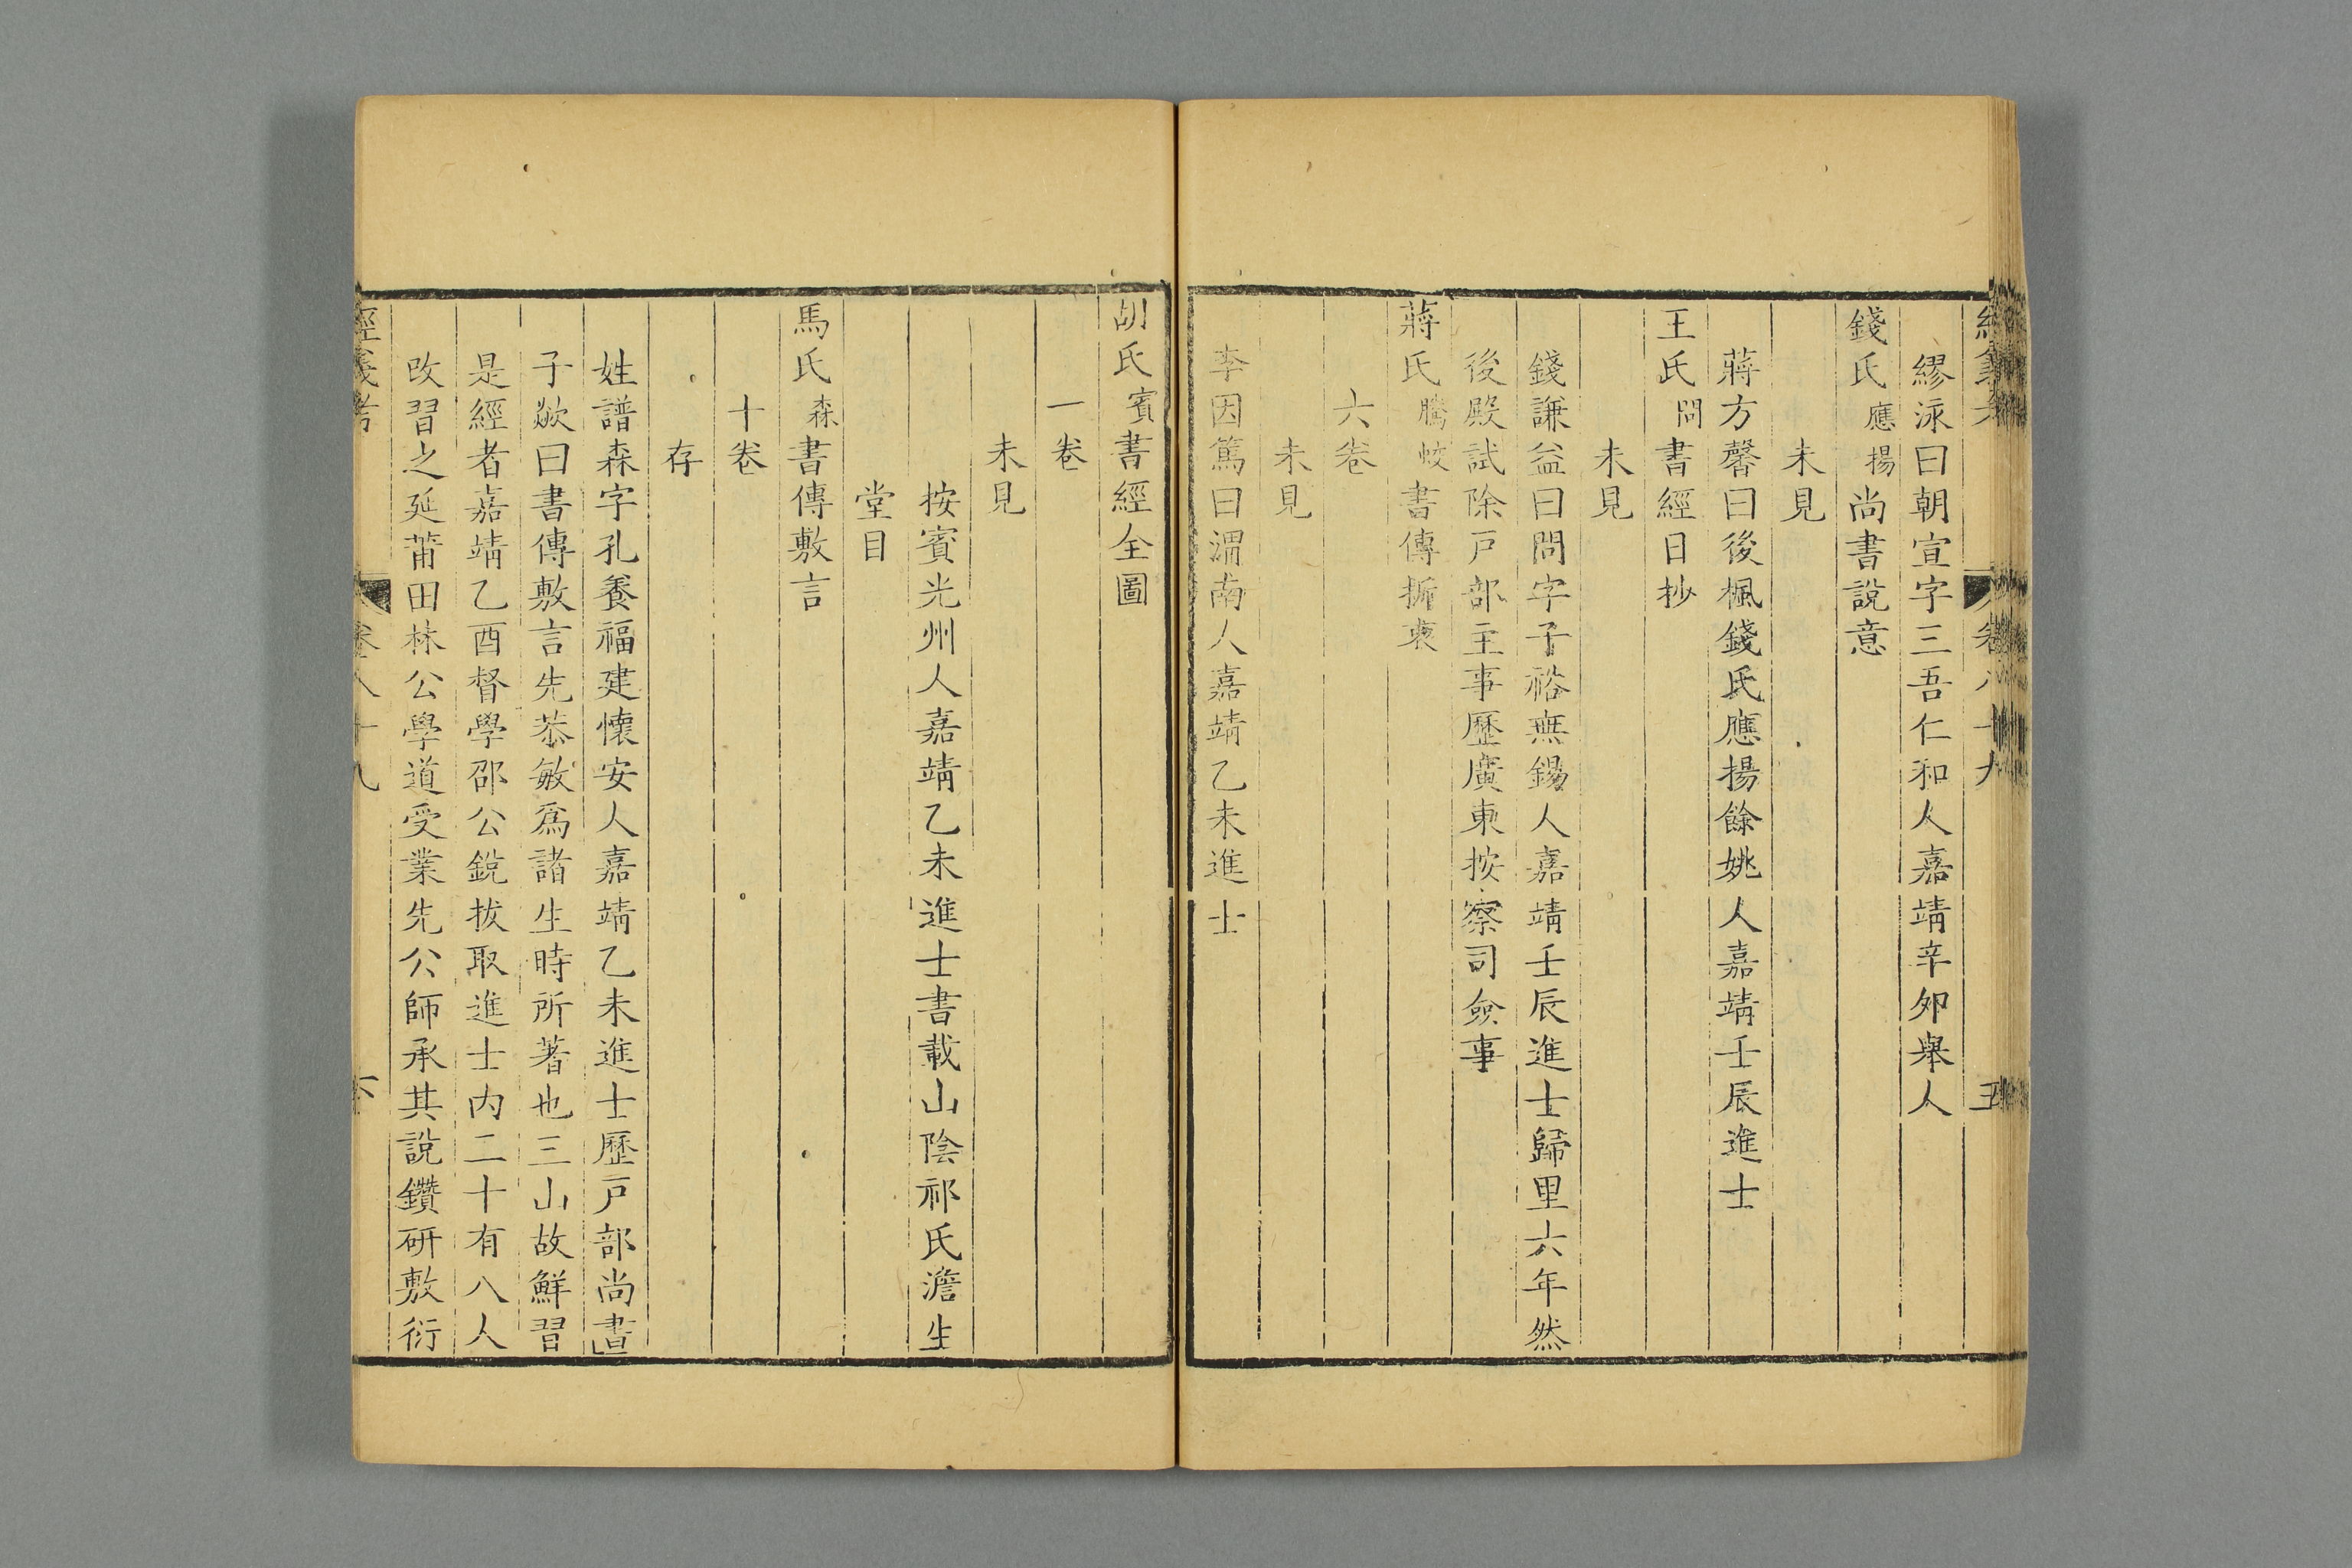 經義考 卷八十九 五
繆泳曰朝宣字三吾仁和人嘉靖辛夘舉人
錢氏應揚尚書說意
未見
蔣方馨曰後楓錢氏應揚餘姚人嘉靖壬辰進士
王氏問書經日抄
未見
錢謙益曰問字子裕無錫人嘉靖壬辰進士歸里六年然
後殿試除戸部主事歷廣東按察司僉事
蔣氏騰蛟書傳折衷
六卷
未見
李因篤曰渭南人嘉靖乙未進士
胡氏賓書經全圖
一卷
未見
按賓光州人嘉靖乙未進士書載山陰祁氏澹生
堂目
馬氏森書傳敷言
十卷
存
姓譜森字孔養福建懷安人嘉靖乙未進士歷戸部尚書
子歘曰書傳敷言先恭敏爲諸生時所著也三山故鮮習
是經者嘉靖乙酉督學邵公銳拔取進士内二十有八人
改習之延莆田林公學道受業先公師承其說鑽研敷衍
經義考 卷八十九 六